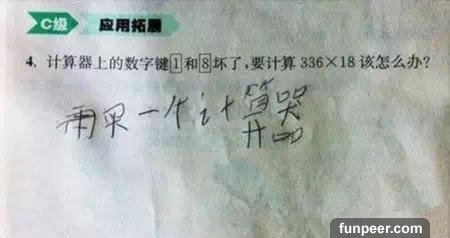 C级 应用拓展
4. 计算器上的数字键1和8坏了,要计算336×18该怎么办?
再买一个计算器
funpeer.com